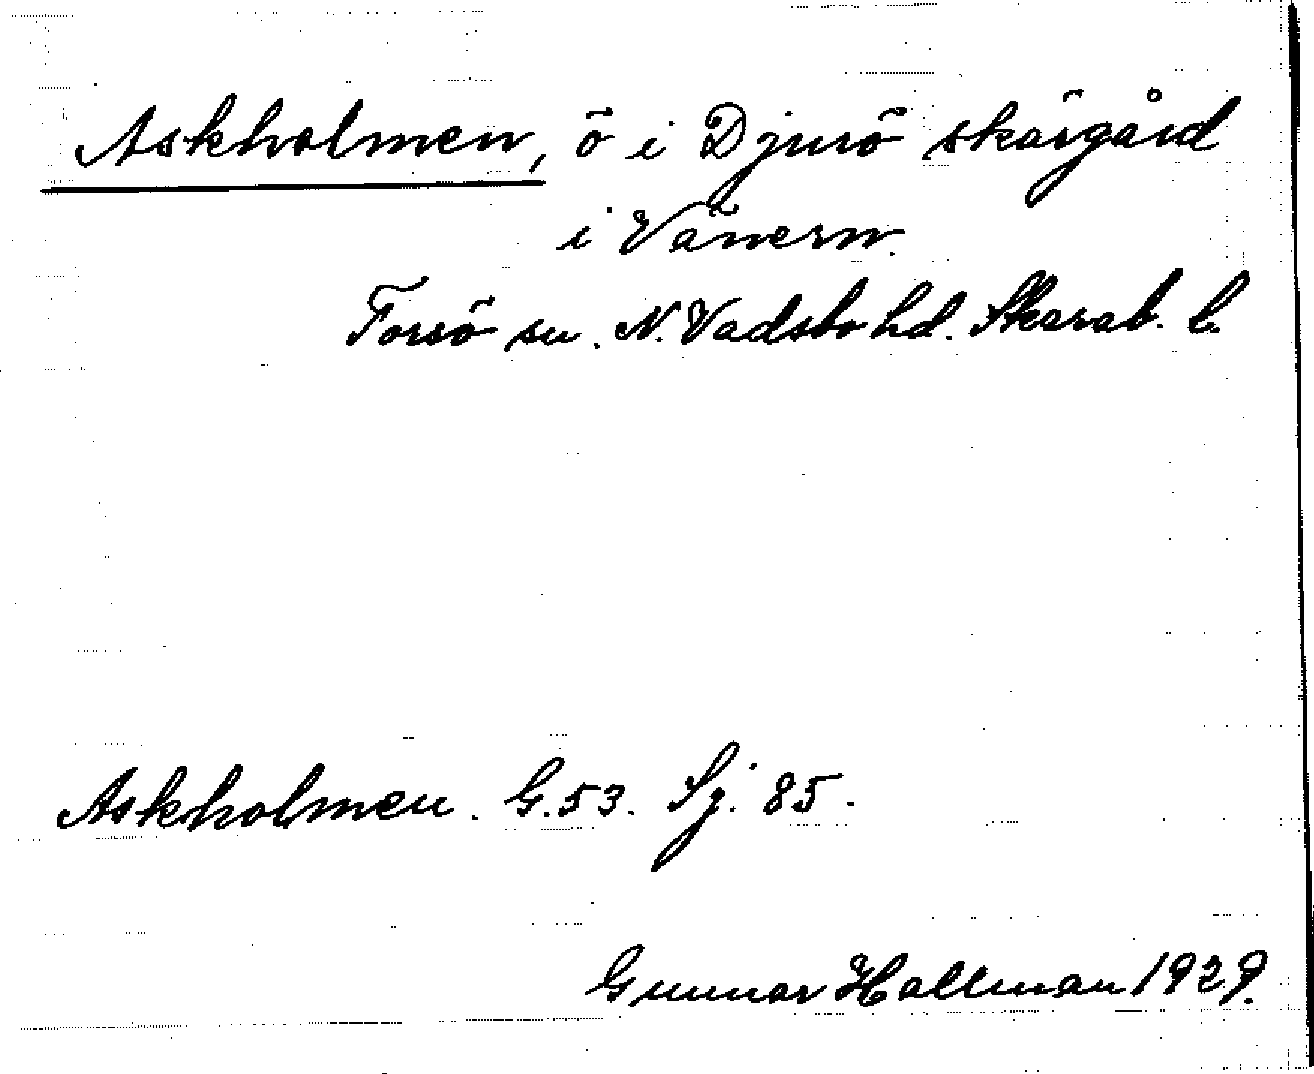 Askholmen, ö i Djurö skärgård
i Vänern.
Torsö sn. N. Vadsbo hd. Skarab. l.
Askholmen. G.53. Sj. 85.
Gunnar Hallman 1929.